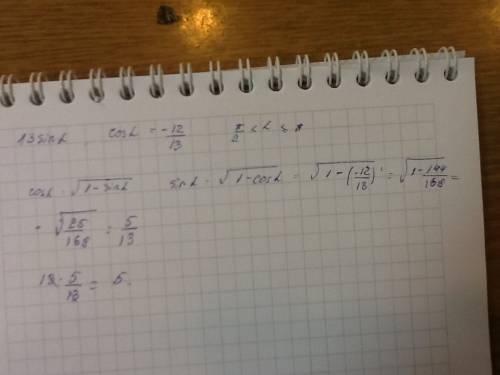 13 sin α   cos α = -12/13   π/2 < α < π
cos α = √(1 - sin α)   sin α = √(1 - cos α) = √(1 - (-12/13)) = √(1 - 144/168) =
= √(25/168) = 5/13
13 · 5/13 = 5.